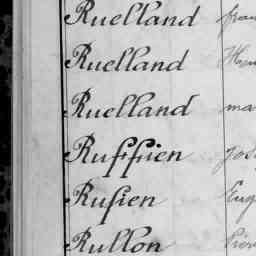 Ruelland fran
Ruelland
Ruelland ma
Ruffien jos
Rufien Eug
Rullon Pier